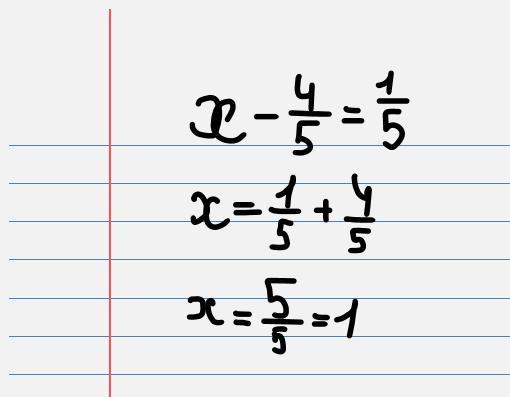 x - 4/5 = 1/5
x = 1/5 + 4/5
x = 5/5 = 1